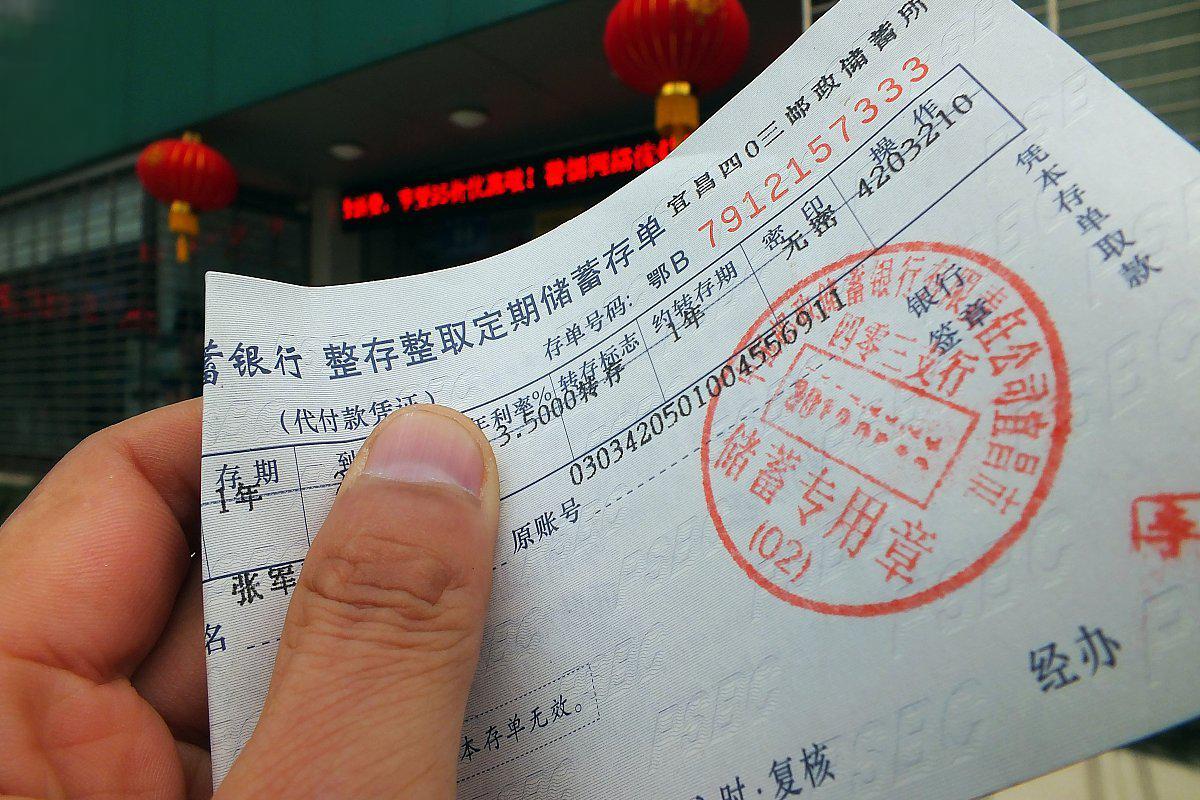 宜昌四0三邮政储蓄所
蓄银行 整存整取定期储蓄存单
(代付款凭证)
存单号码: 鄂B 7912157333
存期
年利率%
转存标志
约转存期
密印
操作
1年
3.5000
转存
1年
无密
4203210
0303420501004556911
张军
名
原账号
银行
签章
凭本存单取款
四零三支行
储蓄专用章
(02)
本存单无效。
复核
经办